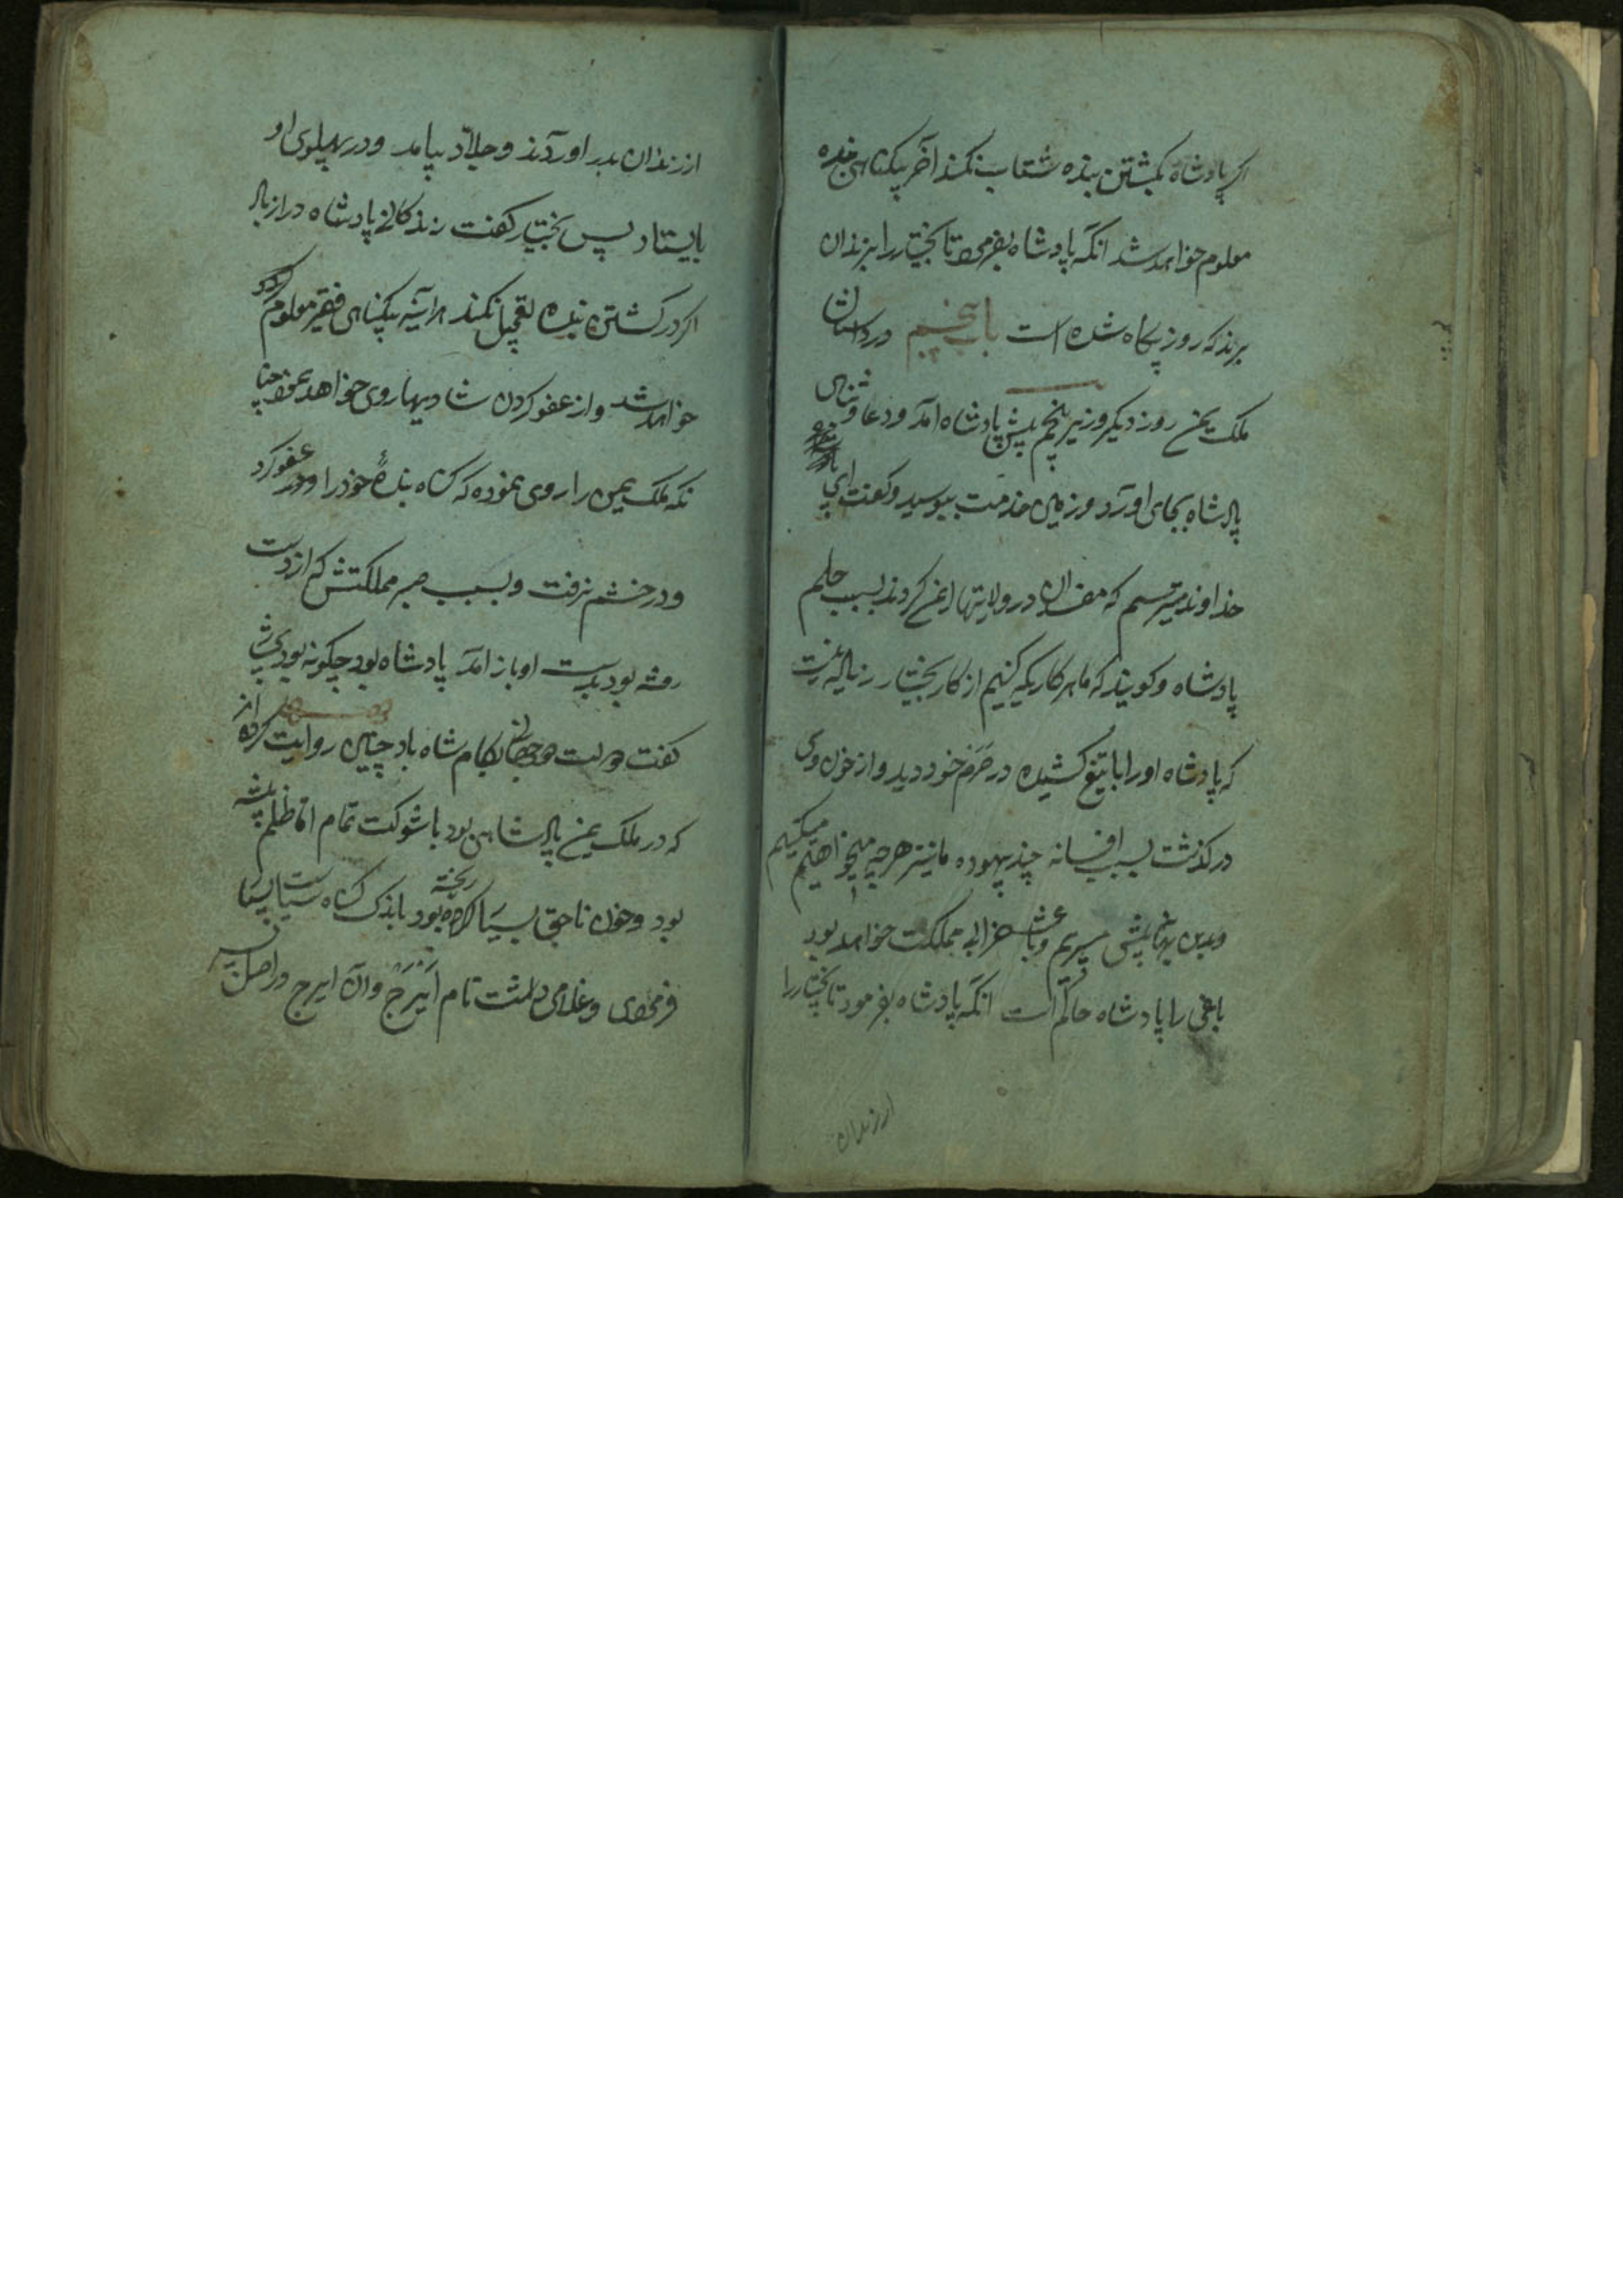 اکر پادشاه بکشتن بنده شتاب نکند آخر بیکناهی بنده
معلوم خواهد شد انکه پادشاه بفرمود تا بختیار را بزندان
برند که روز بیکاه شده است باب پنجم در داستان
ملک یمن روز دیکر وزیر پنجم پیش پادشاه آمد و دعا و ثنای
پادشاه بجای اورد و زمین خدمت ببوسید و کفت ای
خداوند میترسم که مفسدان در ولایتها بسبب حلم
پادشاه و کویند که ما هر کاریکه کنیم از کار بختیار زیاده نیست
که پادشاه او را با تیغ کشیده در حرم خود دید و از خون وی
درکذشت بسبب افسانه چند بیهوده ما نیز هر چه میخواهیم میکنیم
وبدین بهانه پیش میبریم و باعث خرابی مملکت خواهد بود
باقی را پادشاه حاکم است انکه پادشاه بفرمود تا بختیار را
از زندان
از زندان بدر اوردند و جلاد بیامد و در پهلوی او
بایستاد پس بختیار کفت زندکانی پادشاه دراز باد
اکر در کشتن بنده تعجیل نکند هر آینه بیکناهی فقیر معلوم
خواهد شد و از عفو کردن شادیها روی خواهد نمود چنا
نکه ملک یمن را روی نموده که کناه بندهٔ خود را عفو کرد
و در خشم نرفت و بسبب صبر مملکتش که از دست
رفته بود بدست او باز آمد پادشاه بود چکونه بود
کفت جهان بکام شاه باد چنین روایت کرده اند
که در ملک یمن پادشاهی بود با شوکت تمام اما ظلم پیشه
بود و خون ناحق بسیار ریخته بود باندک کناه سیاست بسیار
فرمودی و غلامی داشت نام ابرج وآن ابرج در اصل